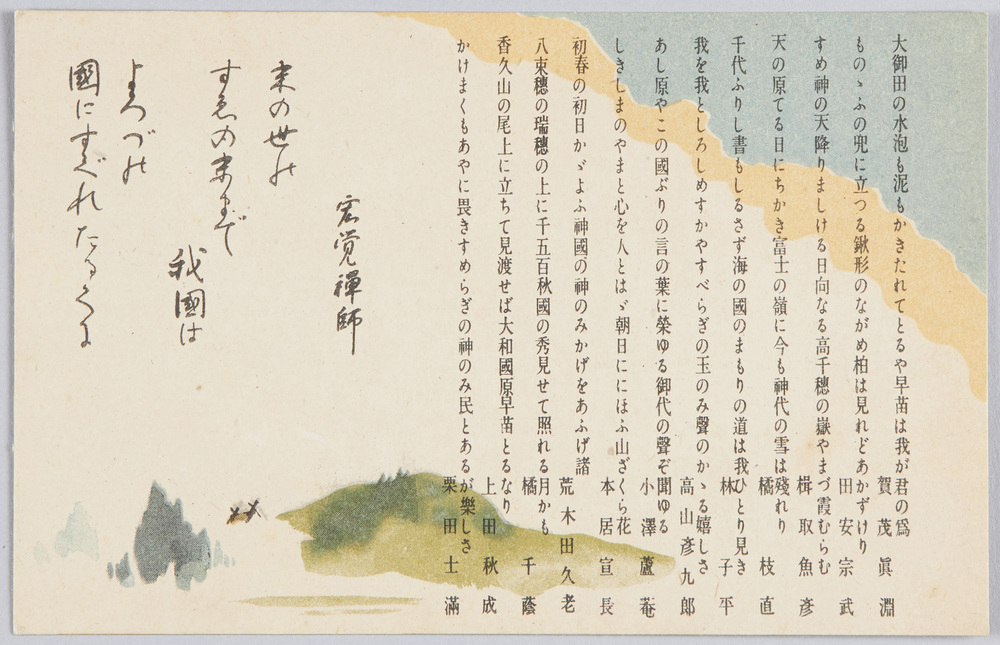 大御田の水泡も泥もかきたれてとるや早苗は我が君の爲
賀茂眞淵
ものゝふの兜に立つる鍬形のながめ柏は見れどあかずけり
田安宗武
すめ神の天降りましける日向なる高千穗の嶽やまづ霞むらむ
楫取魚彥
天の原てる日にちかき富士の嶺に今も神代の雪は殘れり
橘枝直
千代ふりし書もしるさず海の國のまもりの道は我ひとり見き
林子平
我を我としろしめすかやすべらぎの玉のみ聲のかゝる嬉しさ
高山彥九郎
あし原やこの國ぶりの言の葉に榮ゆる御代の聲ぞ聞ゆる
小澤蘆菴
しきしまのやまと心を人とはゞ朝日ににほふ山ざくら花
本居宣長
初春の初日かゞよふ神國の神のみかげをあふげ諸
荒木田久老
八束穗の瑞穗の上に千五百秋國の秀見せて照れる月かも
橘千蔭
香久山の尾上に立ちて見渡せば大和國原早苗とるなり
上田秋成
かけまくもあやに畏きすめらぎの神のみ民とあるが樂しさ
栗田土滿
宏覚禪師
末の世の
すゑの末まで
我國は
よろづの
國にすぐれたるくに